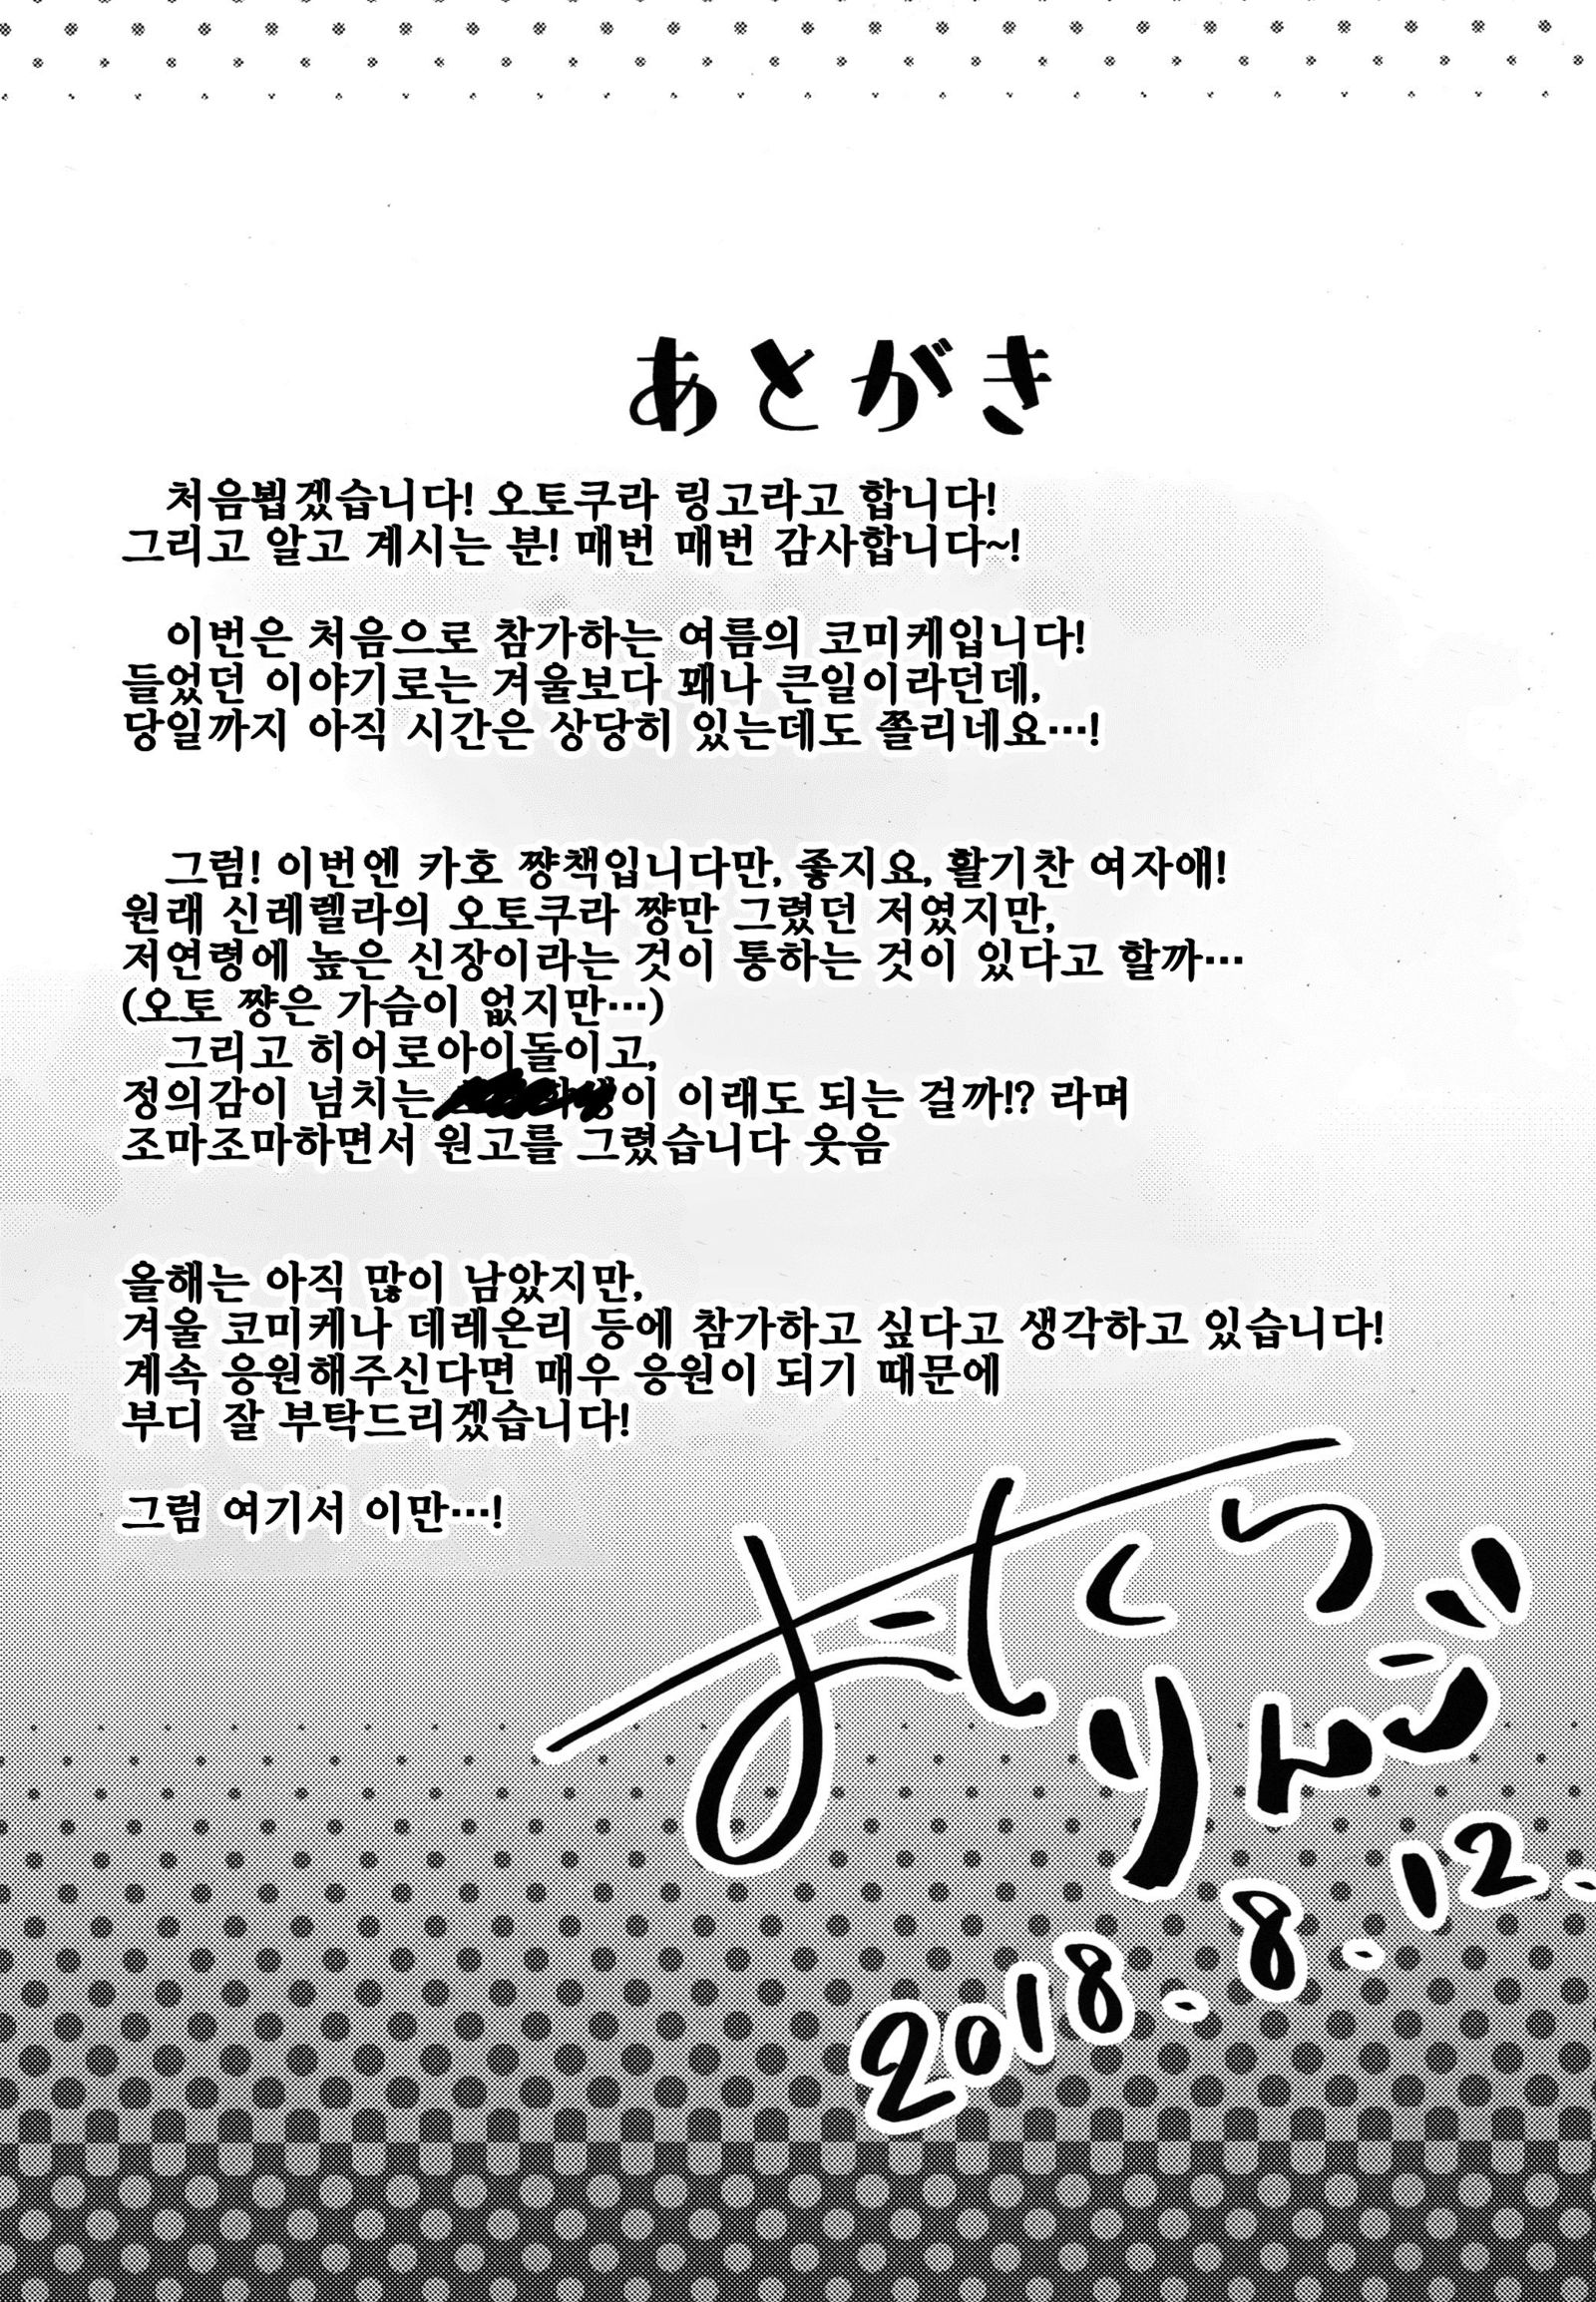 あとがき
처음뵙겠습니다! 오토쿠라 링고라고 합니다!
그리고 알고 계시는 분! 매번 매번 감사합니다~!
이번은 처음으로 참가하는 여름의 코미케입니다!
들었던 이야기로는 겨울보다 꽤나 큰일이라던데,
당일까지 아직 시간은 상당히 있는데도 쫄리네요…!
그럼! 이번엔 카호 쨩책입니다만, 좋지요, 활기찬 여자애!
원래 신레렐라의 오토쿠라 쨩만 그렸던 저였지만,
저연령에 높은 신장이라는 것이 통하는 것이 있다고 할까…
(오토 쨩은 가슴이 없지만…)
그리고 히어로아이돌이고,
정의감이 넘치는 이 이래도 되는 걸까!? 라며
조마조마하면서 원고를 그렸습니다 웃음
올해는 아직 많이 남았지만,
겨울 코미케나 데레온리 등에 참가하고 싶다고 생각하고 있습니다!
계속 응원해주신다면 매우 응원이 되기 때문에
부디 잘 부탁드리겠습니다!
그럼 여기서 이만…!
おとくら
りんご
2018.8.12.